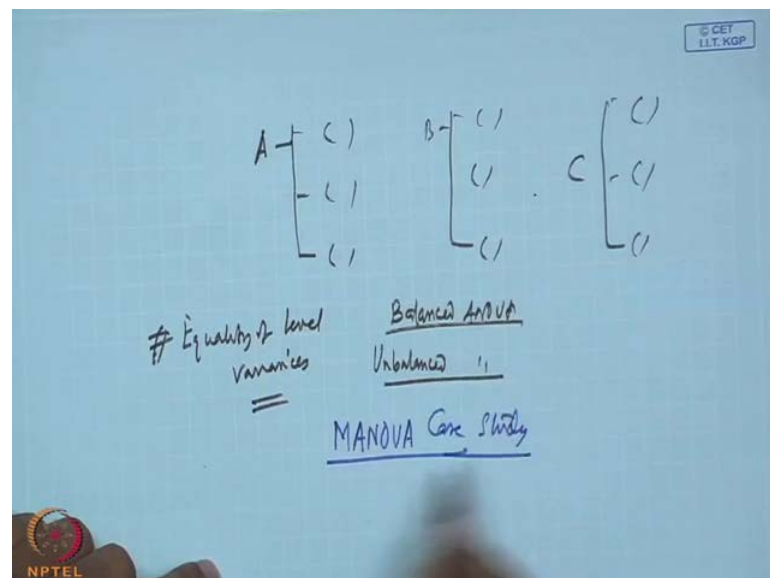 © CET
I.I.T. KGP
A ( ) B ( ) C ( )
( ) ( ) ( )
( ) ( ) ( )
# Equality of level variances
Balanced ANOVA
Unbalanced "
MANOVA Case Study
NPTEL